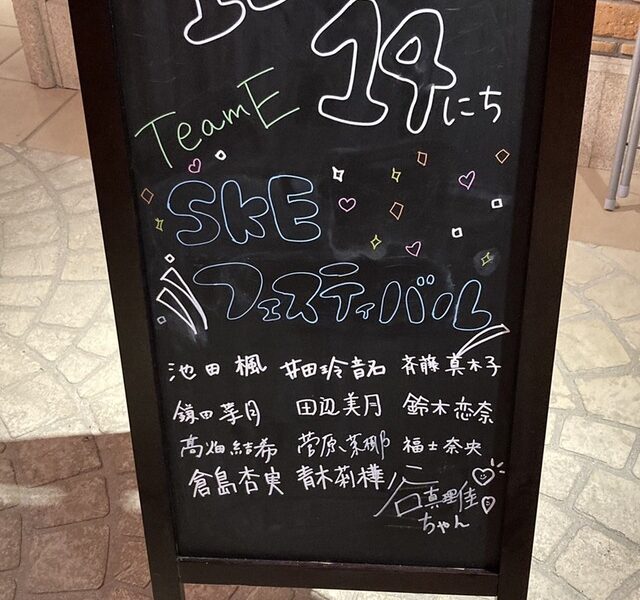 14にち
TeamE
SkE
フェスティバル
池田 楓 井田玲音名 斉藤真木子
鎌田菜月 田辺美月 鈴木恋奈
髙畑結希 菅原茉椰 福士奈央
倉島杏実 青木莉樺 谷真理佳
ちゃん